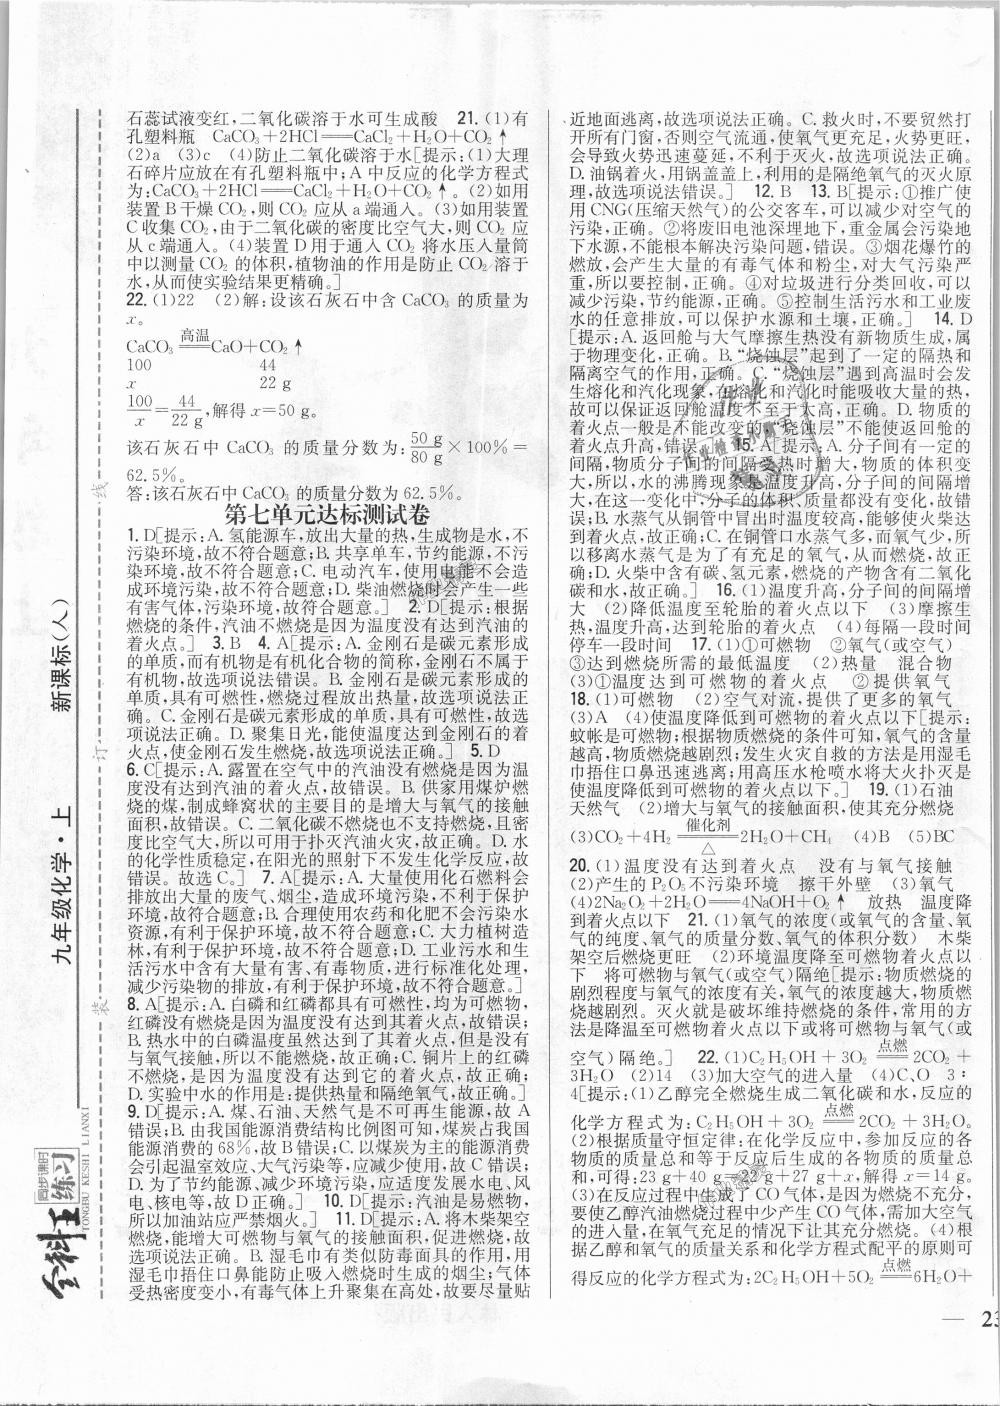 石蕊试液变红,二氧化碳溶于水可生成酸 21. (1)有
孔塑料瓶 CaCO₃+2HCl══CaCl₂+H₂O+CO₂↑
(2)a (3)c (4)防止二氧化碳溶于水[提示:(1)大理
石碎片应放在有孔塑料瓶中;A中反应的化学方程式
为:CaCO₃+2HCl══CaCl₂+H₂O+CO₂↑。(2)如用
装置B干燥CO₂,则CO₂应从a端通入。(3)如用装置
C收集CO₂,由于二氧化碳的密度比空气大,则CO₂应
从c端通入。(4)装置D用于通入CO₂将水压入量筒
中以测量CO₂的体积,植物油的作用是防止CO₂溶于
水,从而使实验结果更精确。]
22. (1)22 (2)解:设该石灰石中含CaCO₃的质量为
x。
高温
CaCO₃══CaO+CO₂↑
100 44
x 22 g
100/x=44/22 g,解得x=50 g。
该石灰石中CaCO₃的质量分数为:50 g/80 g×100%=
62.5%。
答:该石灰石中CaCO₃的质量分数为62.5%。
第七单元达标测试卷
1. D[提示:A. 氢能源车,放出大量的热,生成物是水,不
污染环境,故不符合题意;B. 共享单车,节约能源,不污
染环境,故不符合题意;C. 电动汽车,使用电能不会造
成环境污染,故不符合题意;D. 柴油燃烧时会产生一些
有害气体,污染环境,故符合题意。] 2. D[提示:根据
燃烧的条件,汽油不燃烧是因为温度没有达到汽油的
着火点。] 3. B 4. A[提示:A. 金刚石是碳元素形成
的单质,而有机物是有机化合物的简称,金刚石不属于
有机物,故选项说法错误。B. 金刚石是碳元素形成的
单质,具有可燃性,燃烧过程放出热量,故选项说法正
确。C. 金刚石是碳元素形成的单质,具有可燃性,故选
项说法正确。D. 聚集日光,能使温度达到金刚石的着
火点,使金刚石发生燃烧,故选项说法正确。] 5. D
6. C[提示:A. 露置在空气中的汽油没有燃烧是因为温
度没有达到汽油的着火点,故错误。B. 供家用煤炉燃
烧的煤,制成蜂窝状的主要目的是增大与氧气的接触
面积,故错误。C. 二氧化碳不燃烧也不支持燃烧,且密
度比空气大,所以可用于扑灭汽油火灾,故正确。D. 水
的化学性质稳定,在阳光的照射下不发生化学反应,故
错误。故选C。] 7. A[提示:A. 大量使用化石燃料会
排放出大量的废气、烟尘,造成环境污染,不利于保护
环境,故符合题意;B. 合理使用农药和化肥不会污染水
资源,有利于保护环境,故不符合题意;C. 大力植树造
林,有利于保护环境,故不符合题意;D. 工业污水和生
活污水中含有大量有害、有毒物质,进行标准化处理,
减少污染物的排放,有利于保护环境,故不符合题意。]
8. A[提示:A. 白磷和红磷都具有可燃性,均为可燃物,
红磷没有燃烧是因为温度没有达到其着火点,故错误;
B. 热水中的白磷温度虽然达到了其着火点,但是没有
与氧气接触,所以不能燃烧,故正确;C. 铜片上的红磷
不燃烧,是因为温度没有达到它的着火点,故正确;
D. 实验中水的作用是:提供热量和隔绝氧气,故正确。]
9. D[提示:A. 煤、石油、天然气是不可再生能源,故A
错误;B. 由我国能源消费结构比例图可知,煤炭占我国
能源消费的68%,故B错误;C. 以煤炭为主的能源消费
会引起温室效应、大气污染等,应减少使用,故C错误;
D. 为了节约能源、减少环境污染,应适度发展水电、风
电、核电等,故D正确。] 10. D[提示:汽油是易燃物,
所以加油站应严禁烟火。] 11. D[提示:A. 将木柴架空
燃烧,能增大可燃物与氧气的接触面积,促进燃烧,故
选项说法正确。B. 湿毛巾有类似防毒面具的作用,用
湿毛巾捂住口鼻能防止吸入燃烧时生成的烟尘;气体
受热密度变小,有毒气体上升聚集在高处,故要尽量贴
近地面逃离,故选项说法正确。C. 救火时,不要贸然打
开所有门窗,否则空气流通,使氧气更充足,火势更旺,
会导致火势迅速蔓延,不利于灭火,故选项说法正确。
D. 油锅着火,用锅盖盖上,利用的是隔绝氧气的灭火原
理,故选项说法错误。] 12. B 13. B[提示:①推广使
用CNG(压缩天然气)的公交客车,可以减少对空气的
污染,正确。②将废旧电池深埋地下,重金属会污染地
下水源,不能根本解决污染问题,错误。③烟花爆竹的
燃放,会产生大量的有毒气体和粉尘,对大气污染严
重,所以要控制,正确。④对垃圾进行分类回收,可以
减少污染,节约能源,正确。⑤控制生活污水和工业废
水的任意排放,可以保护水源和土壤,正确。] 14. D
[提示:A. 返回舱与大气摩擦生热没有新物质生成,属
于物理变化,正确。B. “烧蚀层”起到了一定的隔热和
隔离空气的作用,正确。C. “烧蚀层”遇到高温时会发
生熔化和汽化现象,在熔化和汽化时能吸收大量的热,
故可以保证返回舱温度不至于太高,正确。D. 物质的
着火点一般是不能改变的,“烧蚀层”不能使返回舱的
着火点升高,错误。] 15. A[提示:A. 分子间有一定的
间隔,物质分子间的间隔受热时增大,物质的体积变
大,所以,水的沸腾现象是温度升高,分子间的间隔增
大,在这一变化中,分子的体积、质量都没有变化,故错
误;B. 水蒸气从铜管中冒出时温度较高,能够使火柴达
到着火点,故正确;C. 在铜管口水蒸气多,而氧气少,所
以移离水蒸气是为了有充足的氧气,从而燃烧,故正
确;D. 火柴中含有碳、氢元素,燃烧的产物含有二氧化
碳和水,故正确。] 16. (1)温度升高,分子间的间隔增
大 (2)降低温度至轮胎的着火点以下 (3)摩擦生
热,温度升高,达到轮胎的着火点 (4)每隔一段时间
停车一段时间 17. (1)①可燃物 ②氧气(或空气)
③达到燃烧所需的最低温度 (2)热量 混合物
(3)①温度达到可燃物的着火点 ②提供氧气
18. (1)可燃物 (2)空气对流,提供了更多的氧气
(3)A (4)使温度降低到可燃物的着火点以下[提示:
蚊帐是可燃物;根据物质燃烧的条件可知,氧气的含量
越高,物质燃烧越剧烈;发生火灾自救的方法是用湿毛
巾捂住口鼻迅速逃离;用高压水枪喷水将大火扑灭是
使温度降低到可燃物的着火点以下。] 19. (1)石油
天然气 (2)增大与氧气的接触面积,使其充分燃烧
(3)CO₂+4H₂ 催化剂══△ 2H₂O+CH₄ (4)B (5)BC
20. (1)温度没有达到着火点 没有与氧气接触
(2)产生的P₂O₅不污染环境 擦干外壁 (3)氧气
(4)2Na₂O₂+2H₂O══4NaOH+O₂↑ 放热 温度降
到着火点以下 21. (1)氧气的浓度(或氧气的含量、氧
气的纯度、氧气的质量分数、氧气的体积分数) 木柴
架空后燃烧更旺 (2)环境温度降至可燃物着火点以
下 将可燃物与氧气(或空气)隔绝[提示:物质燃烧的
剧烈程度与氧气的浓度有关,氧气的浓度越大,物质燃
烧越剧烈。灭火就是破坏维持燃烧的条件,常用的方
法是降温至可燃物着火点以下或将可燃物与氧气(或
空气)隔绝。] 22. (1)C₂H₅OH+3O₂ 点燃══ 2CO₂+
3H₂O (2)14 (3)加大空气的进入量 (4)C、O 3∶
4[提示:(1)乙醇完全燃烧生成二氧化碳和水,反应的
化学方程式为:C₂H₅OH+3O₂ 点燃══ 2CO₂+3H₂O。
(2)根据质量守恒定律:在化学反应中,参加反应的各
物质的质量总和等于反应后生成的各物质的质量总
和,可得:23 g+40 g=22 g+27 g+x,解得x=14 g。
(3)在反应过程中生成了CO气体,是因为燃烧不充分,
要使乙醇汽油燃烧过程中少产生CO气体,需加大空气
的进入量,在氧气充足的情况下让其充分燃烧。(4)根
据乙醇和氧气的质量关系和化学方程式配平的原则可
得反应的化学方程式为:2C₂H₅OH+5O₂ 点燃══ 6H₂O+
— 23
九年级化学·上 新课标(人)
装 订 线
全科王
同步课时
练习
TONGBU KESHI LIANXI